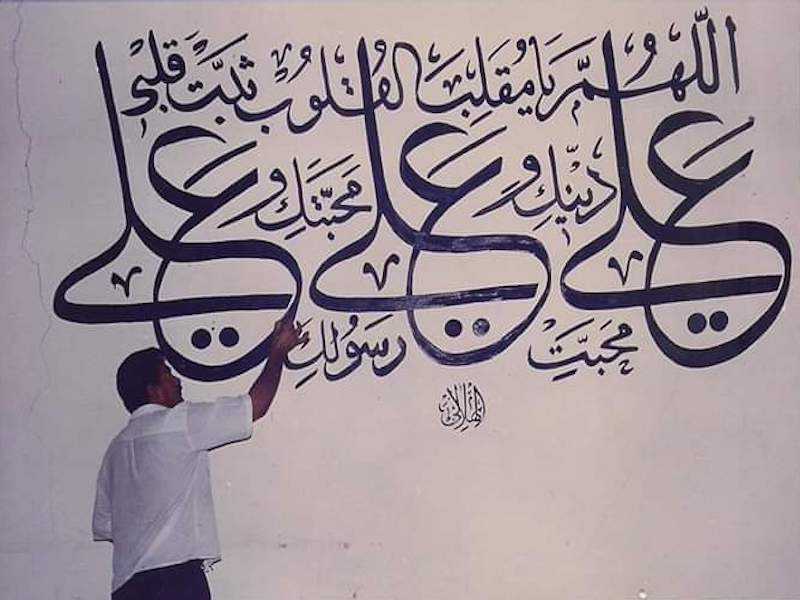 اللّهُمَّ يَا مُقَلِبَ القُلوبْ ثَبَتْ قَلبي
علي دِيْنِكِ وَ علي مَحَبّتَكِ وَ علي
مَحَبَّتِ رَسُولِكِ
الهلالي